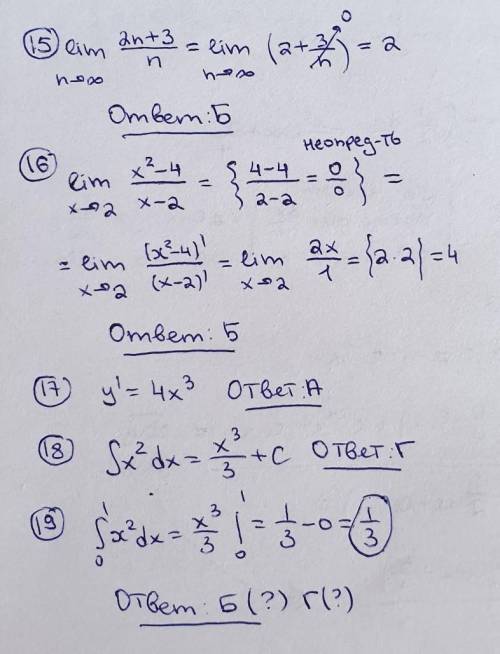 15) lim n→∞ (2n+3)/n = lim n→∞ (2 + 3/n) = 2
0
Ответ: Б
16) lim x→2 (x²-4)/(x-2) = { (4-4)/(2-2) = 0/0 } =
неопред-ть
= lim x→2 (x²-4)'/(x-2)' = lim x→2 2x/1 = {2·2} = 4
Ответ: Б
17) y' = 4x³ Ответ: А
18) ∫x²dx = x³/3 + C Ответ: Г
19) ∫₀¹ x²dx = x³/3 |₀¹ = 1/3 - 0 = 1/3
Ответ: Б (?) Г (?)